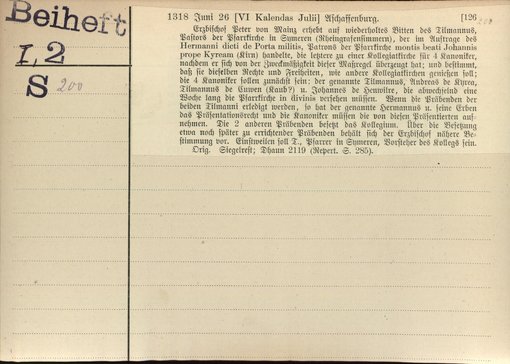 Beiheft
I, 2
S 200
1318 Juni 26 [VI Kalendas Julii] Aschaffenburg. [126
200
Erzbischof Peter von Mainz erhebt auf wiederholtes Bitten des Tilmannus,
Pastors der Pfarrkirche in Symeren (Rheingrafensimmern), der im Auftrage des
Hermanni dicti de Porta militis, Patrons der Pfarrkirche montis beati Johannis
prope Kyream (Kirn) handelte, die letztere zu einer Kollegiatkirche für 4 Kanoniker,
nachdem er sich von der Zweckmäßigkeit dieser Maßregel überzeugt hat; und bestimmt,
daß sie dieselben Rechte und Freiheiten, wie andere Kollegiatkirchen genießen soll;
die 4 Kanoniker sollen zunächst sein: der genannte Tilmannus, Andreas de Kyren,
Tilmannus de Cuwen (Kaub?) u. Johannes de Henwilre, die abwechselnd eine
Woche lang die Pfarrkirche in divinis versehen müssen. Wenn die Präbenden der
beiden Tilmanni erledigt werden, so hat der genannte Hermannus u. seine Erben
das Präsentationsrecht und die Kanoniker müssen die von diesen Präsentierten auf-
nehmen. Die 2 anderen Präbenden besetzt das Kollegium. Über die Besetzung
etwa noch später zu errichtender Präbenden behält sich der Erzbischof nähere Be-
stimmung vor. Einstweilen soll T., Pfarrer in Symeren, Vorsteher des Kollegs sein.
Orig. Siegelrest; Dhaun 2119 (Repert. S. 285).